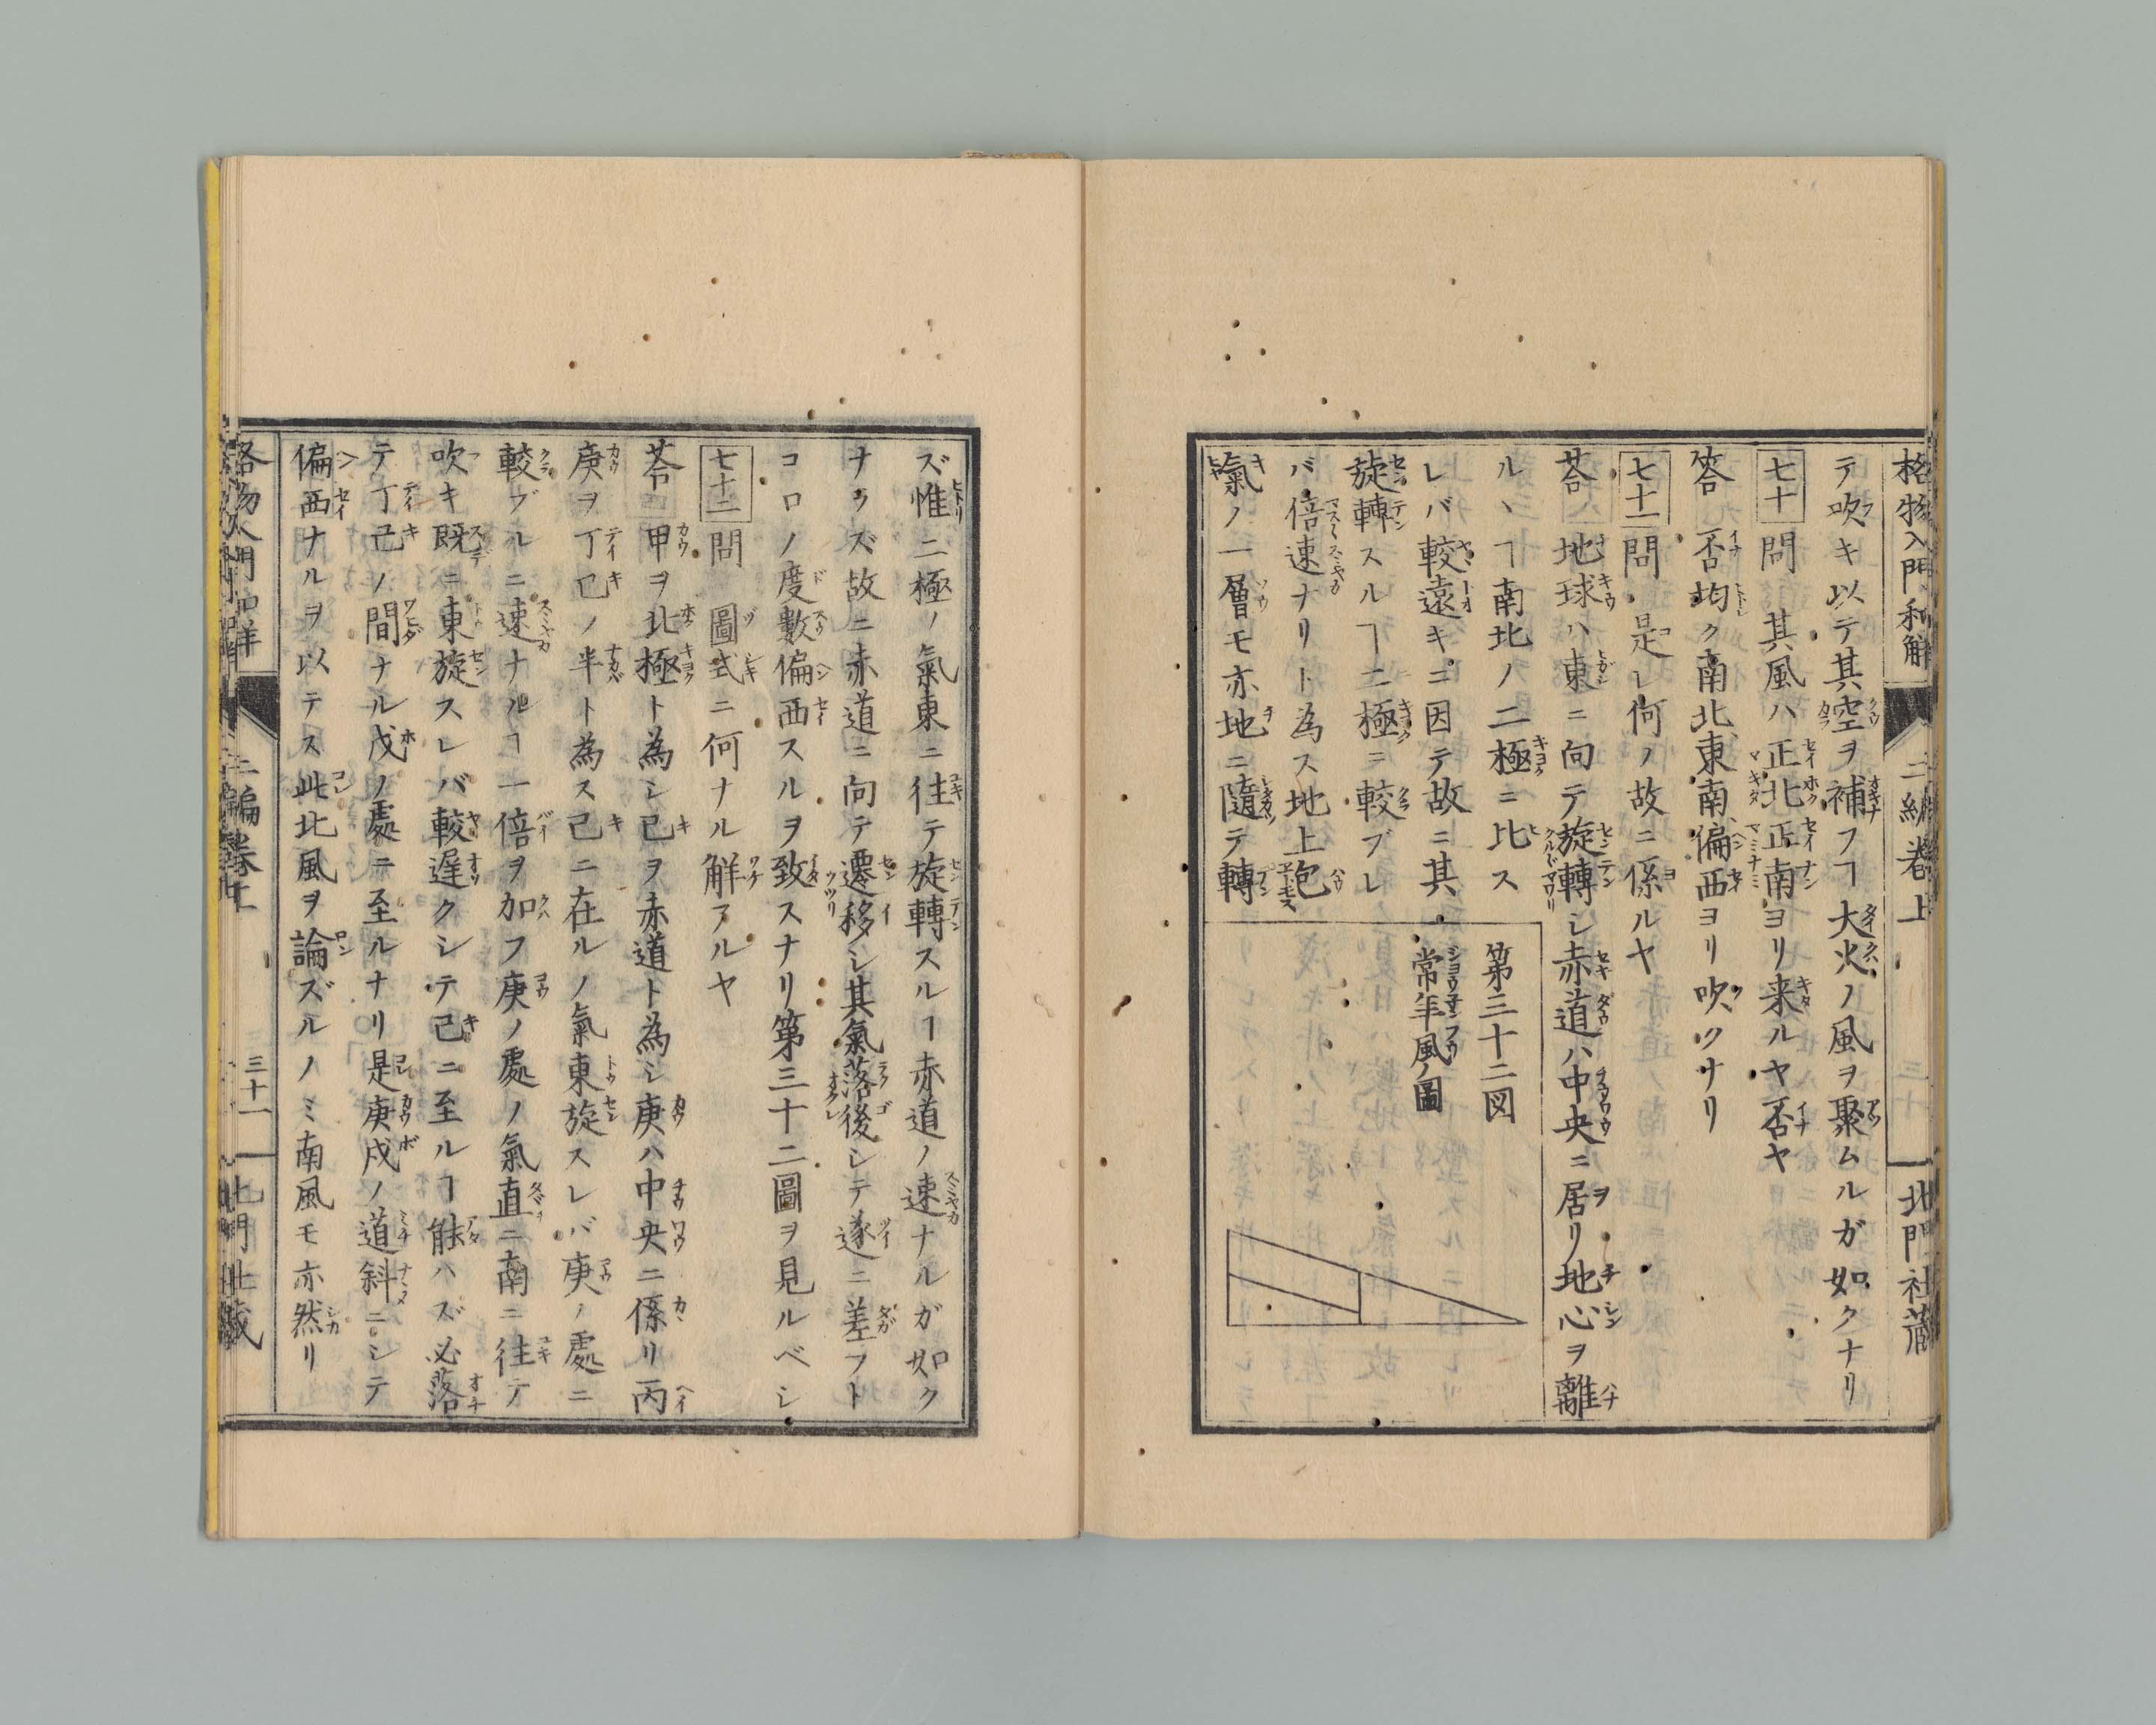 格物入門和解 二編卷上 三十 北門社蔵
テ吹キ以テ其空ヲ補フヿ大火ノ風ヲ聚ムルガ如クナリ
七十 問 其風ハ正北正南ヨリ来ルヤ否ヤ
答 否均ク南北東南偏西ヨリ吹クナリ
七十一 問 是レ何ノ故ニ係ルヤ
荅 地球ハ東ニ向テ旋轉シ赤道ハ中央ニ居リ地心ヲ離
ルヽヿ南北ノ二極ニ比ス
レバ較遠キニ因テ故ニ其
旋轉スルヿ二極ニ較ブレ
バ倍速ナリト為ス地上包
氣ノ一層モ亦地ニ隨テ轉
第三十二図
常年風ノ圖
ズ惟二極ノ氣東ニ往テ旋轉スルヿ赤道ノ速ナルガ如ク
ナラズ故ニ赤道ニ向テ遷移シ其氣落後シテ遂ニ差フト
コロノ度數偏西スルヲ致スナリ第三十二圖ヲ見ルベシ
七十二 問 圖式ニ何ナル解アルヤ
荅 甲ヲ北極ト為シ己ヲ赤道ト為シ庚ハ中央ニ係リ丙
庚ヲ丁己ノ半ト為ス己ニ在ルノ氣東旋スレバ庚ノ處ニ
較ブルニ速ナルヿ一倍ヲ加フ庚ノ處ノ氣直ニ南ニ往テ
吹キ既ニ東旋スレバ較遅クシテ己ニ至ルヿ能ハズ必落
テ丁己ノ間ナル戊ノ處ニ至ルナリ是庚戊ノ道斜ニシテ
偏西ナルヲ以テス此北風ヲ論ズルノミ南風モ亦然リ
格物入門和解 二編卷上 三十一 北門社蔵